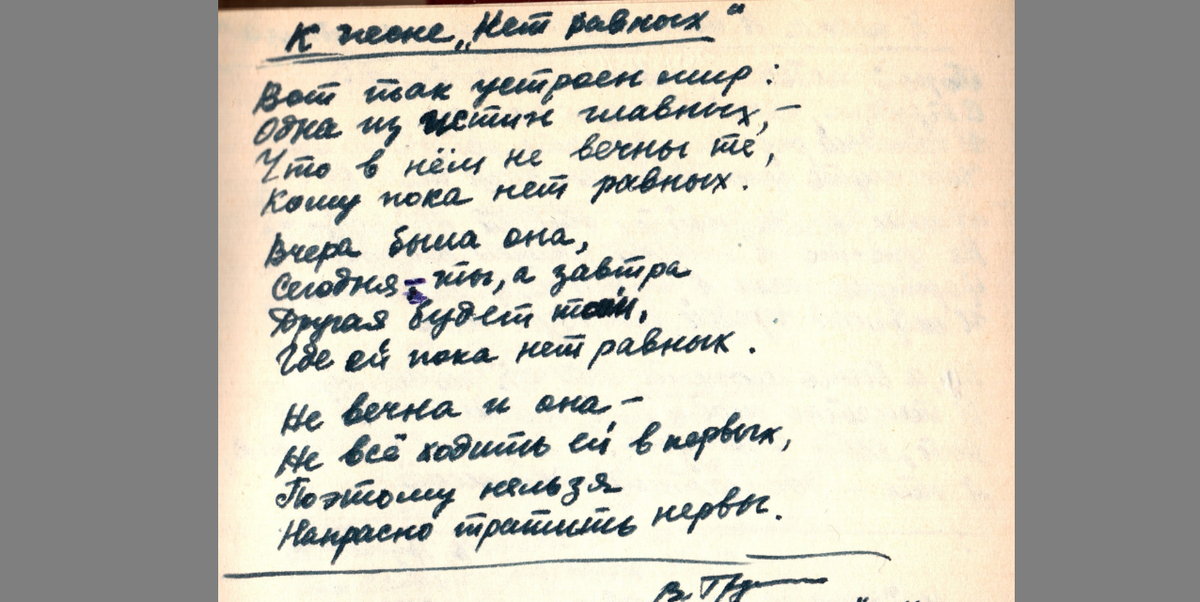 К песне „Нет равных“
Вот так устроен мир:
Одна из истин главных, –
Что в нём не вечны те,
Кому пока нет равных.
Вчера была она,
Сегодня – ты, а завтра
Другая будет там,
Где ей пока нет равных.
Не вечна и она –
Не всё ходить ей в первых,
Поэтому нельзя
Напрасно тратить нервы.
В.